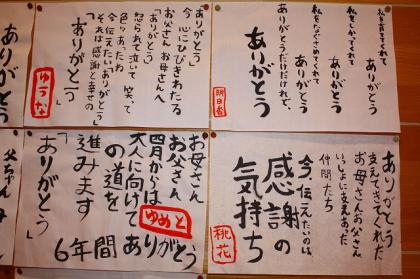 私を育ててくれて
ありがとう
私をしかってくれて
ありがとう
私をなぐさめてくれて
ありがとう
ありがとうだけだけれど、
ありがとう
明日香
ありがとう
今 心にひびきわたる
お父さん お母さんへ
「ありがとう」
怒られて泣いて 笑って
色々あったね
今伝えたいありがとう
それは感謝と幸せの
「ありがとう」
ゆうな
ありがとう
ありがとう
支えてきてくれた
お母さんお父さん
いっしょに支えあった
仲間たち
今、伝えたいのは、
感謝の
気持ち
桃花
お母さん
お父さん
四月からは
大人に向けて
の道を
進みます
「ありがとう」
6年間ありがとう
ゆめと
父ちゃん